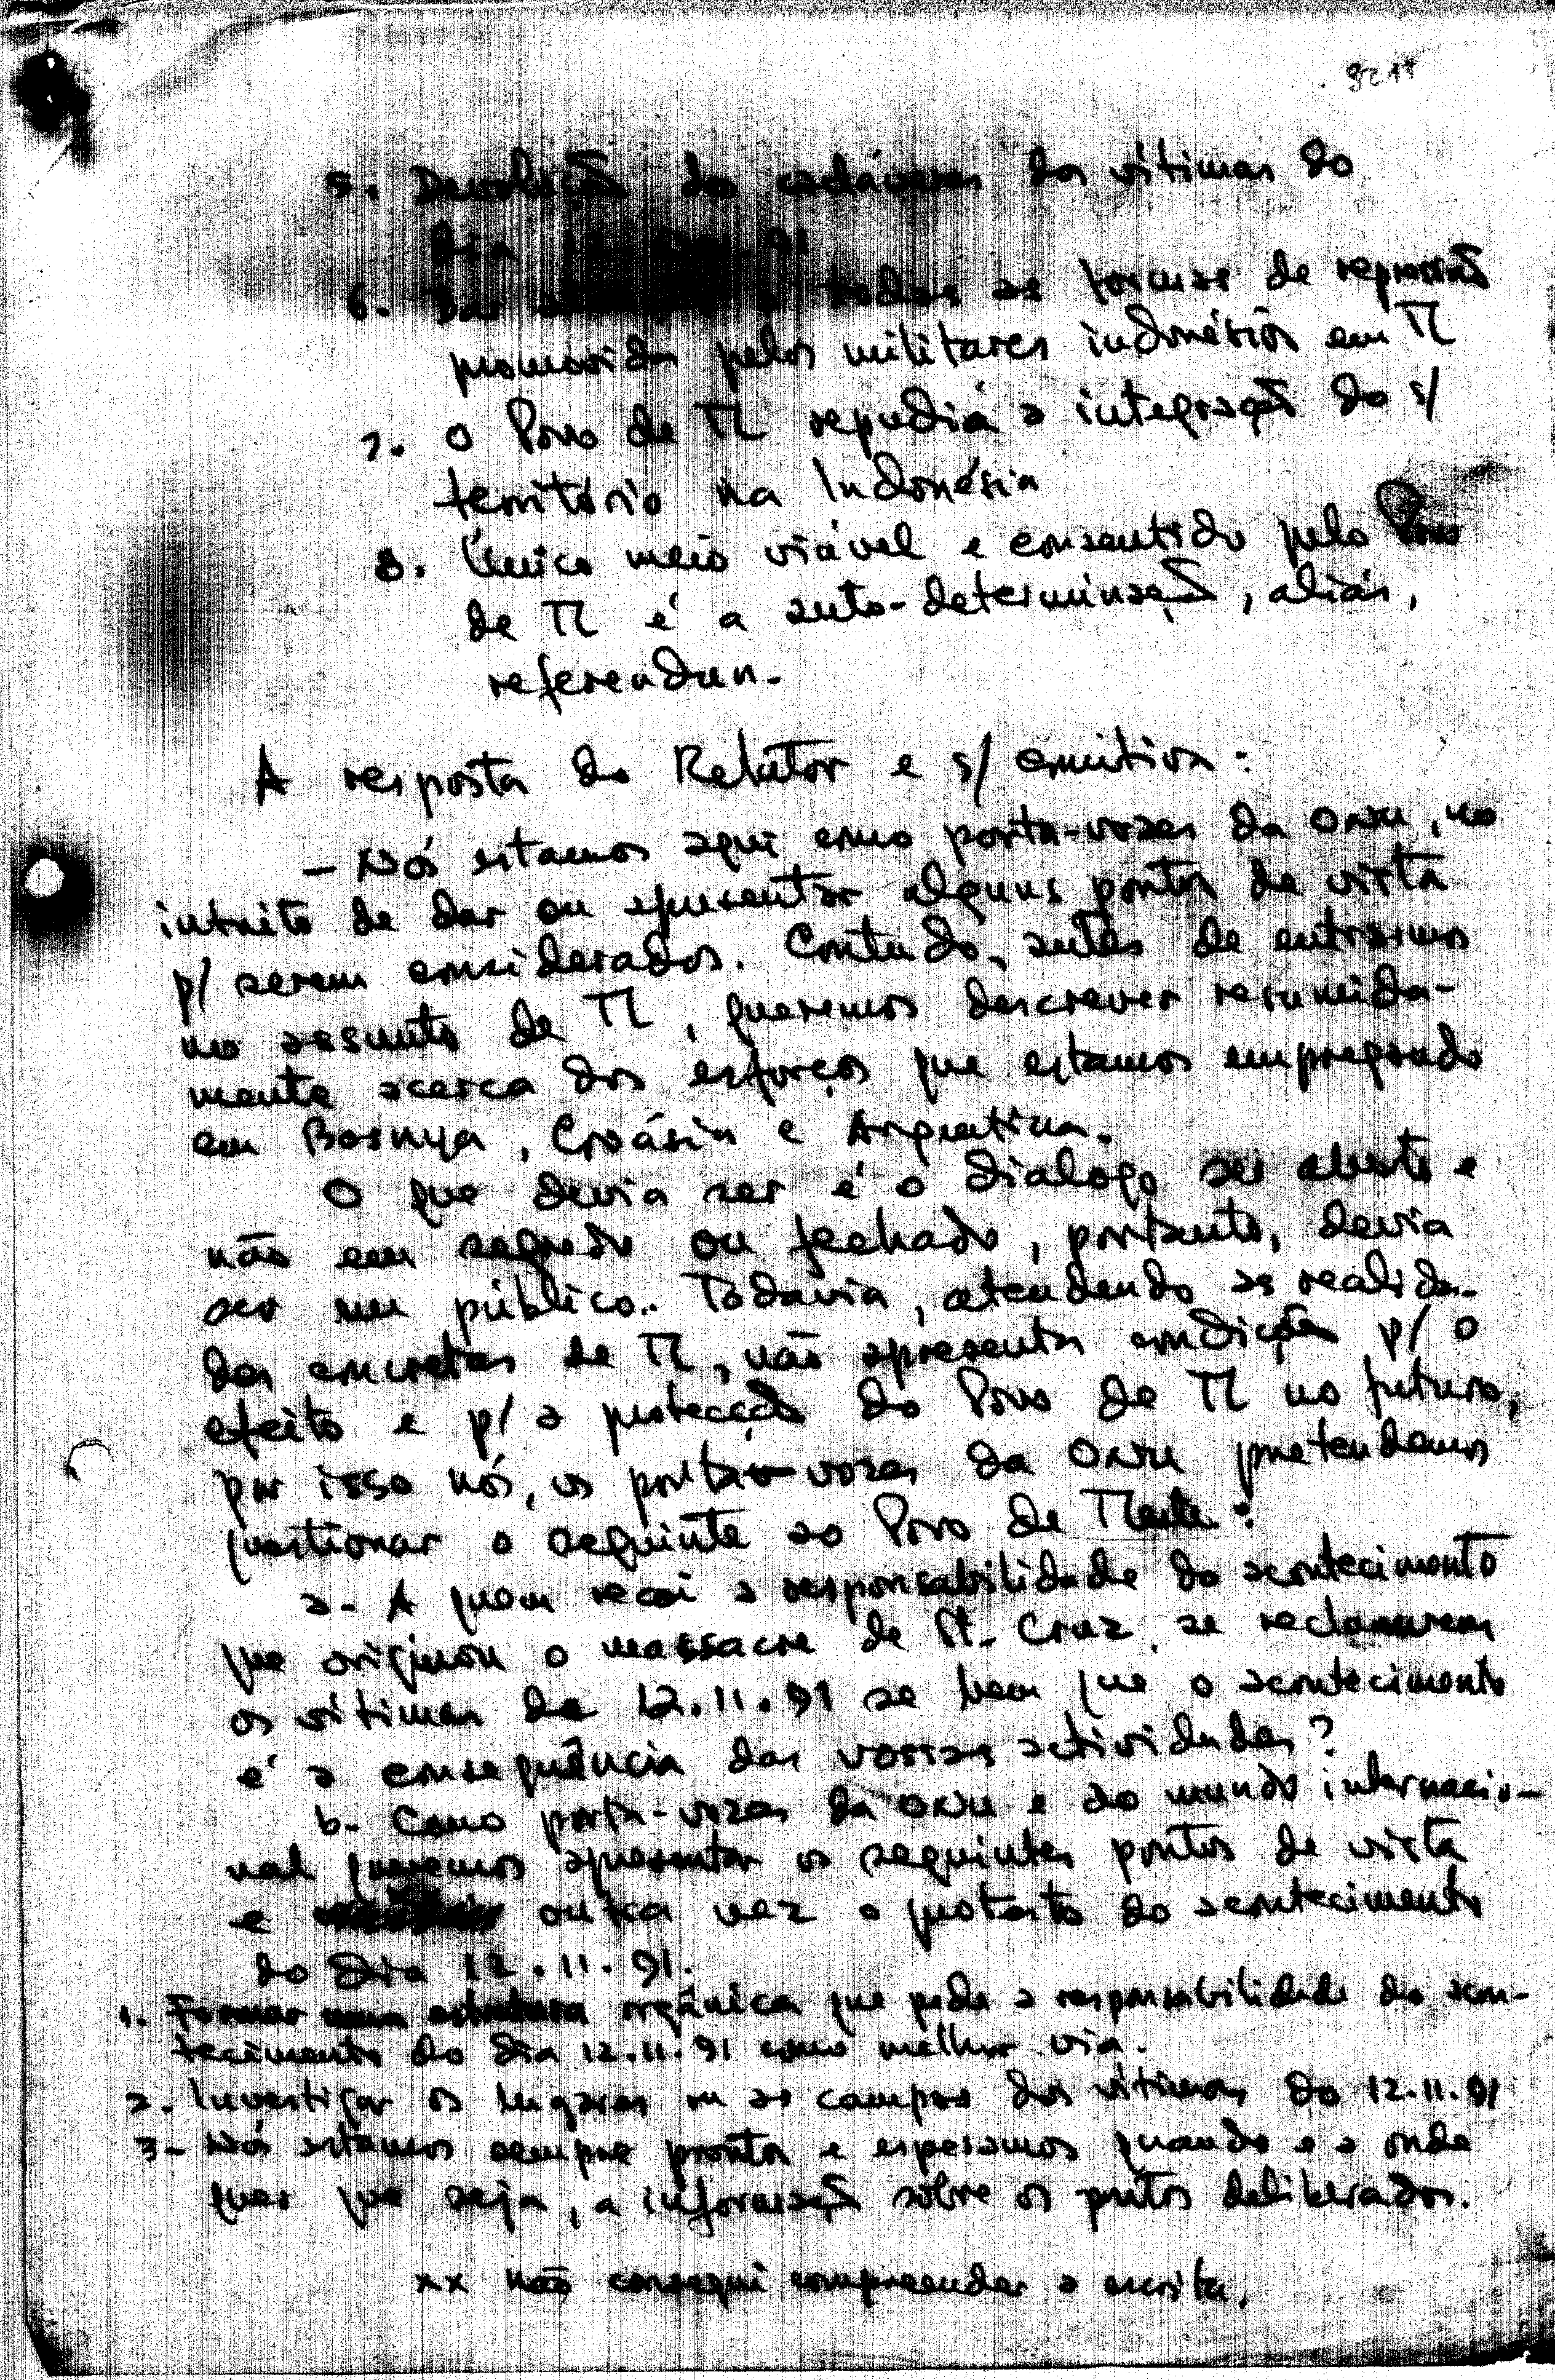 5. Devolução dos cadáveres das vítimas do
dia 91
6. Dar todas as formas de repressão
promovida pelos militares indonésios em TL
7. O Povo de TL repudia a integração do s/
território na Indonésia
8. Único meio viável e consentido pelo Povo
de TL é a auto-determinação, aliás,
referendun.
A resposta do Relator e s/ comitiva:
- Nós estamos aqui como porta-vozes da ONU, no
intuito de dar ou apresentar alguns pontos de vista
p/ serem considerados. Contudo, antes de entrarmos
no assunto de TL, queremos descrever resumida-
mente acerca dos esforços que estamos empregando
em Bosnya, Croásia e Argentina.
O que devia ser é o dialogo ser aberto e
não em segredo ou fechado, portanto, devia
ser em público. Todavia, atendendo as realida-
des concretas de TL, não apresenta condições p/ o
efeito e p/ a protecção do Povo de TL no futuro,
por isso nós, os porta-vozes da ONU pretendemos
questionar o seguinte ao Povo de TLeste:
a- A quem recai a responsabilidade do acontecimento
que originou o massacre de St. Cruz, se reclamarem
os vítimas de 12.11.91 se bem que o acontecimento
é a consequência das vossas actividades?
b- Como porta-vozes da ONU e do mundo internacio-
nal queremos apresentar os seguintes pontos de vista
e outra vez o protesto do acontecimento
do dia 12.11.91.
1. Formar uma estrutura orgânica que pede a responsabilidade do acon-
tecimento do dia 12.11.91 como melhor via.
2. Investigar os lugares ou as campas das vítimas do 12.11.91
3- Nós estamos sempre prontos e esperamos quando e a onde
quer que seja, a informação sobre os pontos deliberados.
xx Não consegui compreender a escrita,